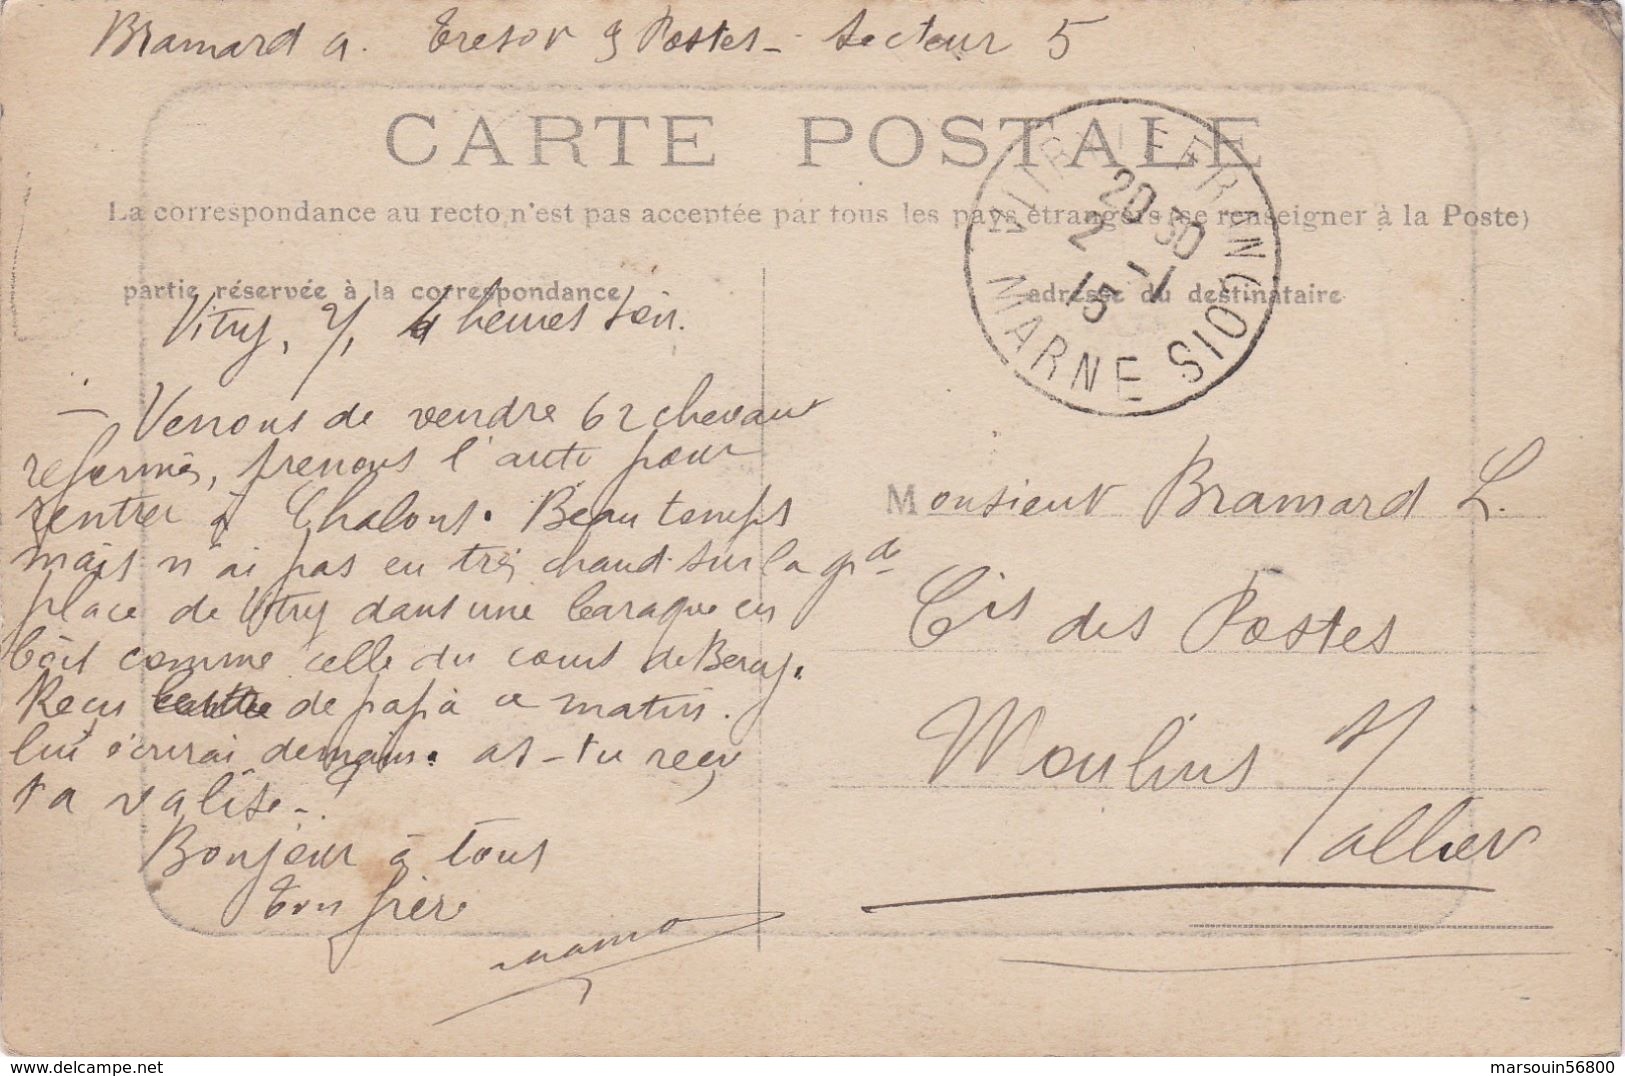 Bramard a. Tresor & Postes - Secteur 5
CARTE POSTALE
La correspondance au recto n'est pas acceptée par tous les pays étrangers (se renseigner à la Poste)
partie réservée à la correspondance
adresse du destinataire
VITRY-LE-FRANÇOIS
20 30
2 - 1
15
MARNE
Vitry, 4 heures soir.
- Venons de vendre 62 chevaux
reformés, prenons l'auto pour
rentrer à Chalons. Beau temps
mais n'ai pas eu très chaud sur la gde
place de Vitry dans une baraque en
bois comme celle du cours de Bercy.
Reçu lettre de papa ce matin.
lui écrirai demain. as-tu reçu
ta valise - ?
Bonjour à tous
Ton frère
Monsieur Bramard L.
Cis des Postes
Moulins s/
allier
marsouin56800